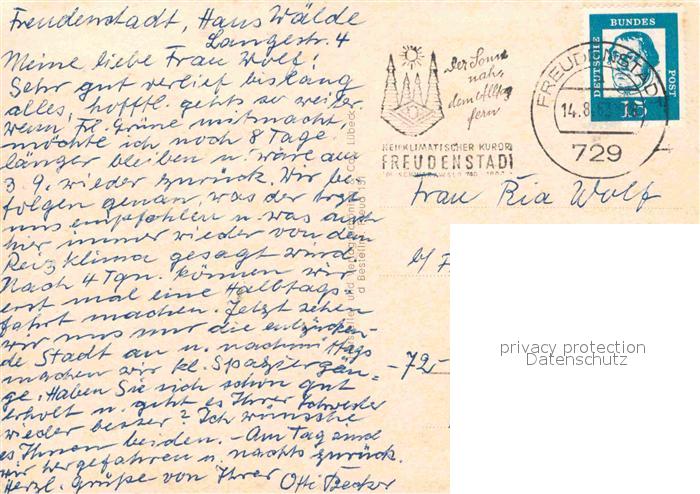 Freudenstadt, Haus Wälde
Langestr. 4
Meine liebe Frau Wolf!
Sehr gut verlief bislang
alles, hofftl. gehts so weiter.
wenn Frl. Grüne mitmacht,
möchte ich noch 8 Tage
länger bleiben u. wäre am
3 9. wieder zurück. Wir be-
folgen genau, was der Arzt
uns empfohlen u. was auch
hier immer wieder von dem
Reizklima gesagt wird.
Nach 4 Tgn. können wir
erst mal eine Halbtags-
fahrt machen. Jetzt sehen
wir uns nur die entzücken-
de Stadt an u. nachmittags
machen wir kl. Spaziergän-
ge. Haben Sie sich schon gut
erholt u. geht es Ihrer Schwester
wieder besser? Ich wünsche
es Ihnen beiden. - Am Tag sind
wir hergefahren u. nachts zurück.
Herzl. Grüße von Ihrer Otti Becker
Der Sonne
nahe
dem Alltag
fern
HEILKLIMATISCHER KURORT
FREUDENSTADT
DEUTSCHE
BUNDES
POST
15
FREUDENSTADT
14.8.63
729
Frau Ria Wolf
b/
-72-
privacy protection
Datenschutz